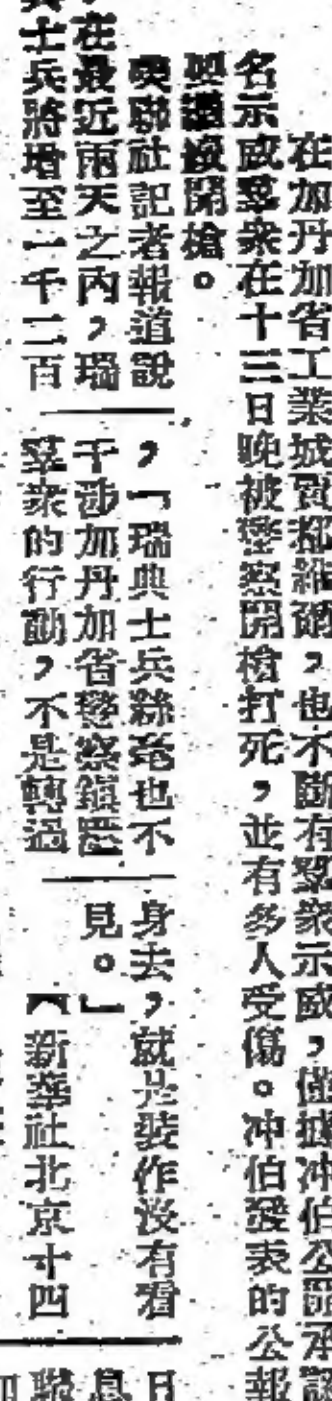 在加丹加省工業城賈都維爾，也不斷有羣衆示威，僅據冲伯公開承認
名示威羣衆在十三日晚被警察開槍打死，並有多人受傷。冲伯發表的公報
開槍。
美聯社記者報道說
，在最近兩天之內，瑞
士兵將增至一千二百
，「瑞典士兵絲毫也不
干涉加丹加省警察鎮壓
羣衆的行動，不是轉過
身去，就是裝作沒有看
見。」
【新華社北京十四
日
息
聯
加